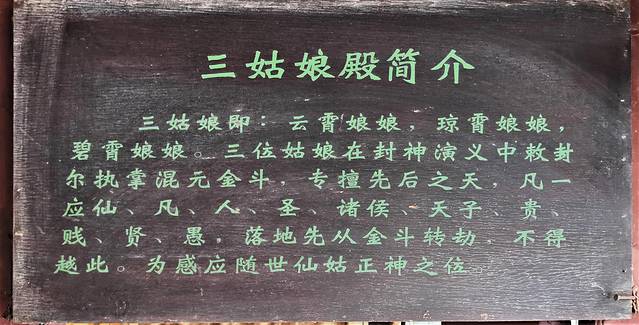 三姑娘殿简介
三姑娘即：云霄娘娘，琼霄娘娘，
碧霄娘娘。三位姑娘在封神演义中敕封
尔执掌混元金斗，专擅先后之天，凡一
应仙、凡、人、圣、诸侯、天子、贵、
贱、贤、愚，落地先从金斗转劫，不得
越此。为感应随世仙姑正神之位